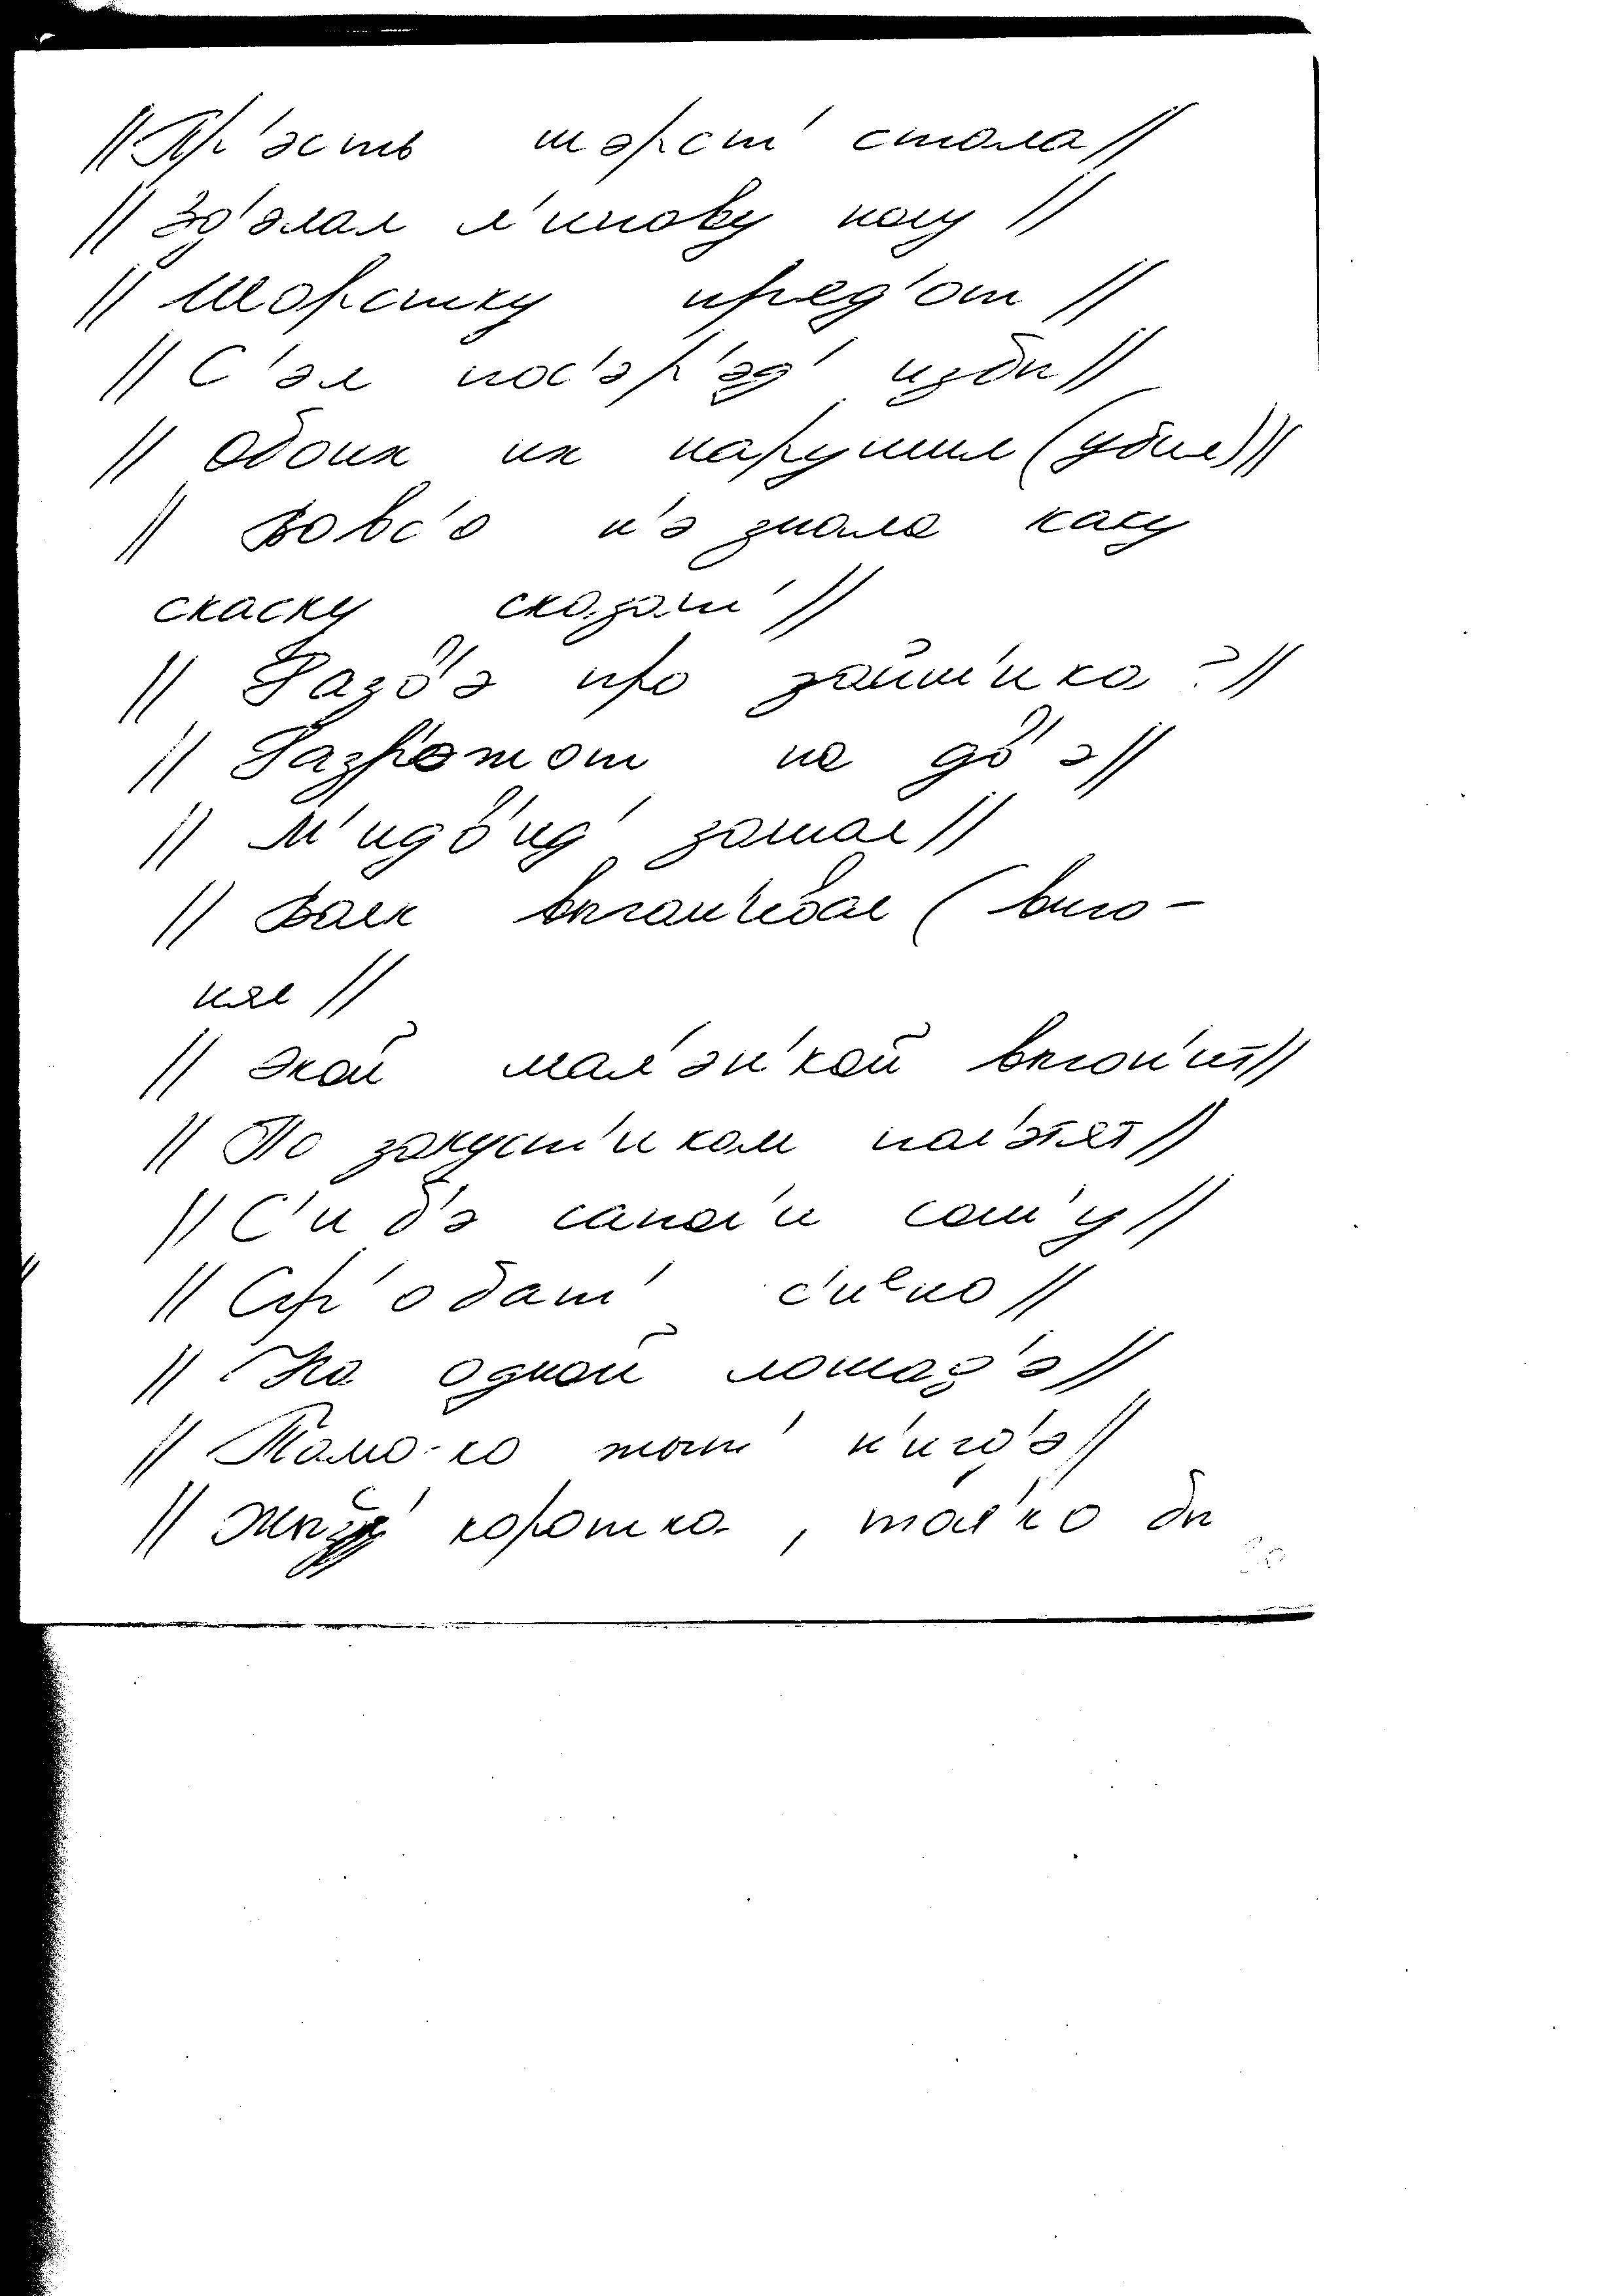 // Пр'эсть шэрст' стала //
// Зд'элал л'ипову ногу //
// Шорстку пряд'от //
// С'эл пос'эр'эд' избы //
// Обоих их нарушил (убил) //
// Вовс'о н'э знала каку
скаску сказат' //
// Разв'э про зайт'ика? //
// Разр'ежот на дв'э //
// М'идв'ид' зашол //
// Волк выган'ивал (выго-
нял //
// Экой мал'эн'кой выгон'ит //
// По закуст'икам пол'этят //
// С'иб'э сапог'и сош'у //
// Стр'обат' с'ично //
// На одной лошад'э //
// Тамо-ко жыт' н'игд'э //
// Жызн' коротка, тол'ко бы